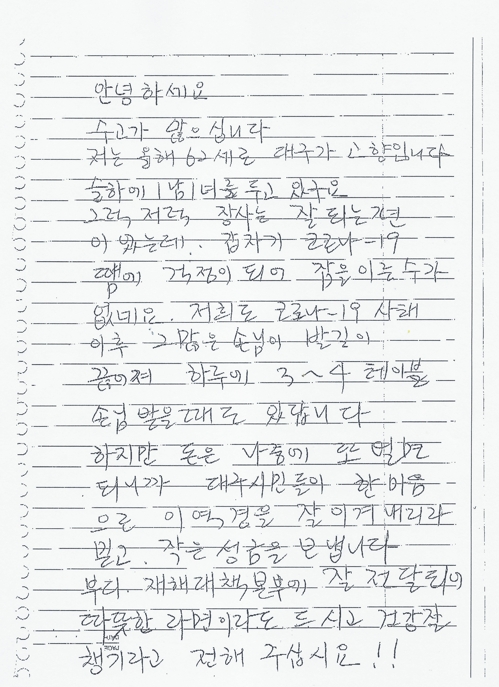 안녕하세요
수고가 많으십니다
저는 올해 62세로 대구가 고향입니다
슬하에 1남1녀를 두고 있구요
그럭저럭 장사는 잘 되는편
이 였는데. 갑자기 코로나-19
땜에 걱정이 되어 잠을 이룰 수가
없네요. 저희도 코로나-19 사태
이후 그 많은 손님이 발길이
끊어져 하루에 3~4 테이블
손님 받을때도 있답니다
하지만 돈은 나중에 또 벌면
되니까 대구시민들이 한마음
으로 이 역경을 잘 이겨내리라
믿고. 작은 성금을 보냅니다
부디. 재해대책본부에 잘 전달되어
따뜻한 라면이라도 드시고 건강잘
챙기라고 전해 주십시요!!